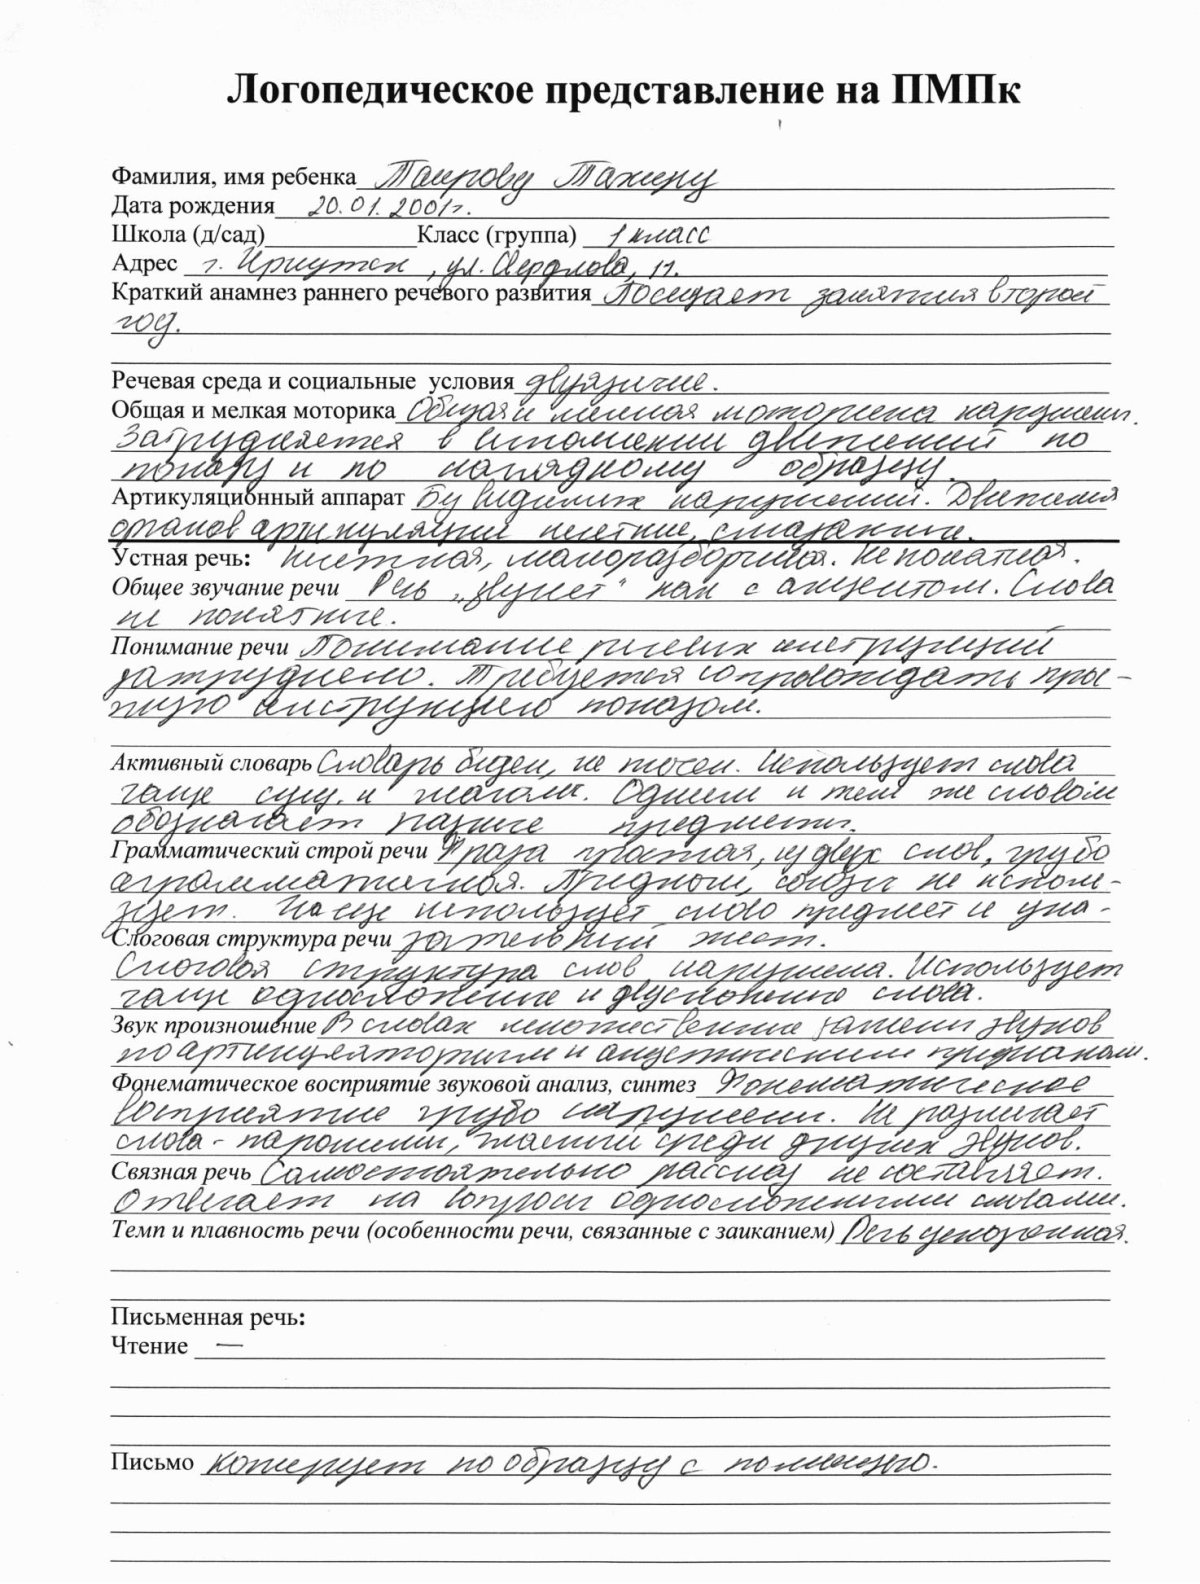 Логопедическое представление на ПМПк
Фамилия, имя ребенка Таирову Тахиру
Дата рождения 20.01.2001г.
Школа (д/сад) Класс (группа) 1 класс
Адрес г. Иркутск, ул. Свердлова, 11.
Краткий анамнез раннего речевого развития Посещает занятия второй
год.
Речевая среда и социальные условия двуязычие.
Общая и мелкая моторика Общая и мелкая моторика нарушены.
Затрудняется в исполнении движений по
показу и по наглядному образцу.
Артикуляционный аппарат Без видимых нарушений. Движения
органов артикуляции нечеткие, смазанные.
Устная речь: нечеткая, малоразборчивая. Не понятная.
Общее звучание речи Речь „звучит" как с акцентом. Слова
не понятные.
Понимание речи Понимание речевых инструкций
затруднено. Требуется сопровождать пря-
мую инструкцию показом.
Активный словарь Словарь беден, не точен. Использует слова
чаще сущ. и глаголы. Одним и тем же словом
обозначает разные предметы.
Грамматический строй речи Фраза простая, из двух слов, грубо
аграмматичная. Предлоги, союзы не исполь-
зует. Чаще использует слово предмет и ука-
Слоговая структура речи зательный жест.
Слоговая структура слов нарушена. Использует
чаще односложные и двусложные слова.
Звук произношение В словах множественные замены звуков
по артикуляторным и акустическим признакам.
Фонематическое восприятие звуковой анализ, синтез Фонематическое
восприятие грубо нарушено. Не различает
слова-паронимы, гласный среди других звуков.
Связная речь Самостоятельно рассказ не составляет.
Отвечает на вопросы односложными словами.
Темп и плавность речи (особенности речи, связанные с заиканием) Речь ускоренная.
Письменная речь:
Чтение —
Письмо копирует по образцу с помощью.